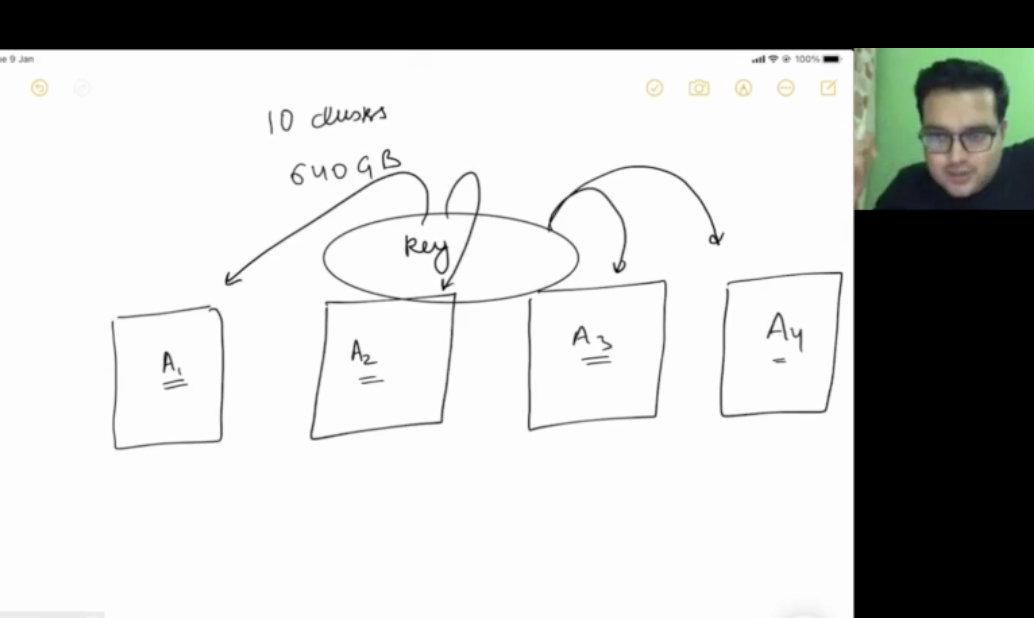 ue 9 Jan
100%
10 disks
640 GB
key
A1
A2
A3
A4